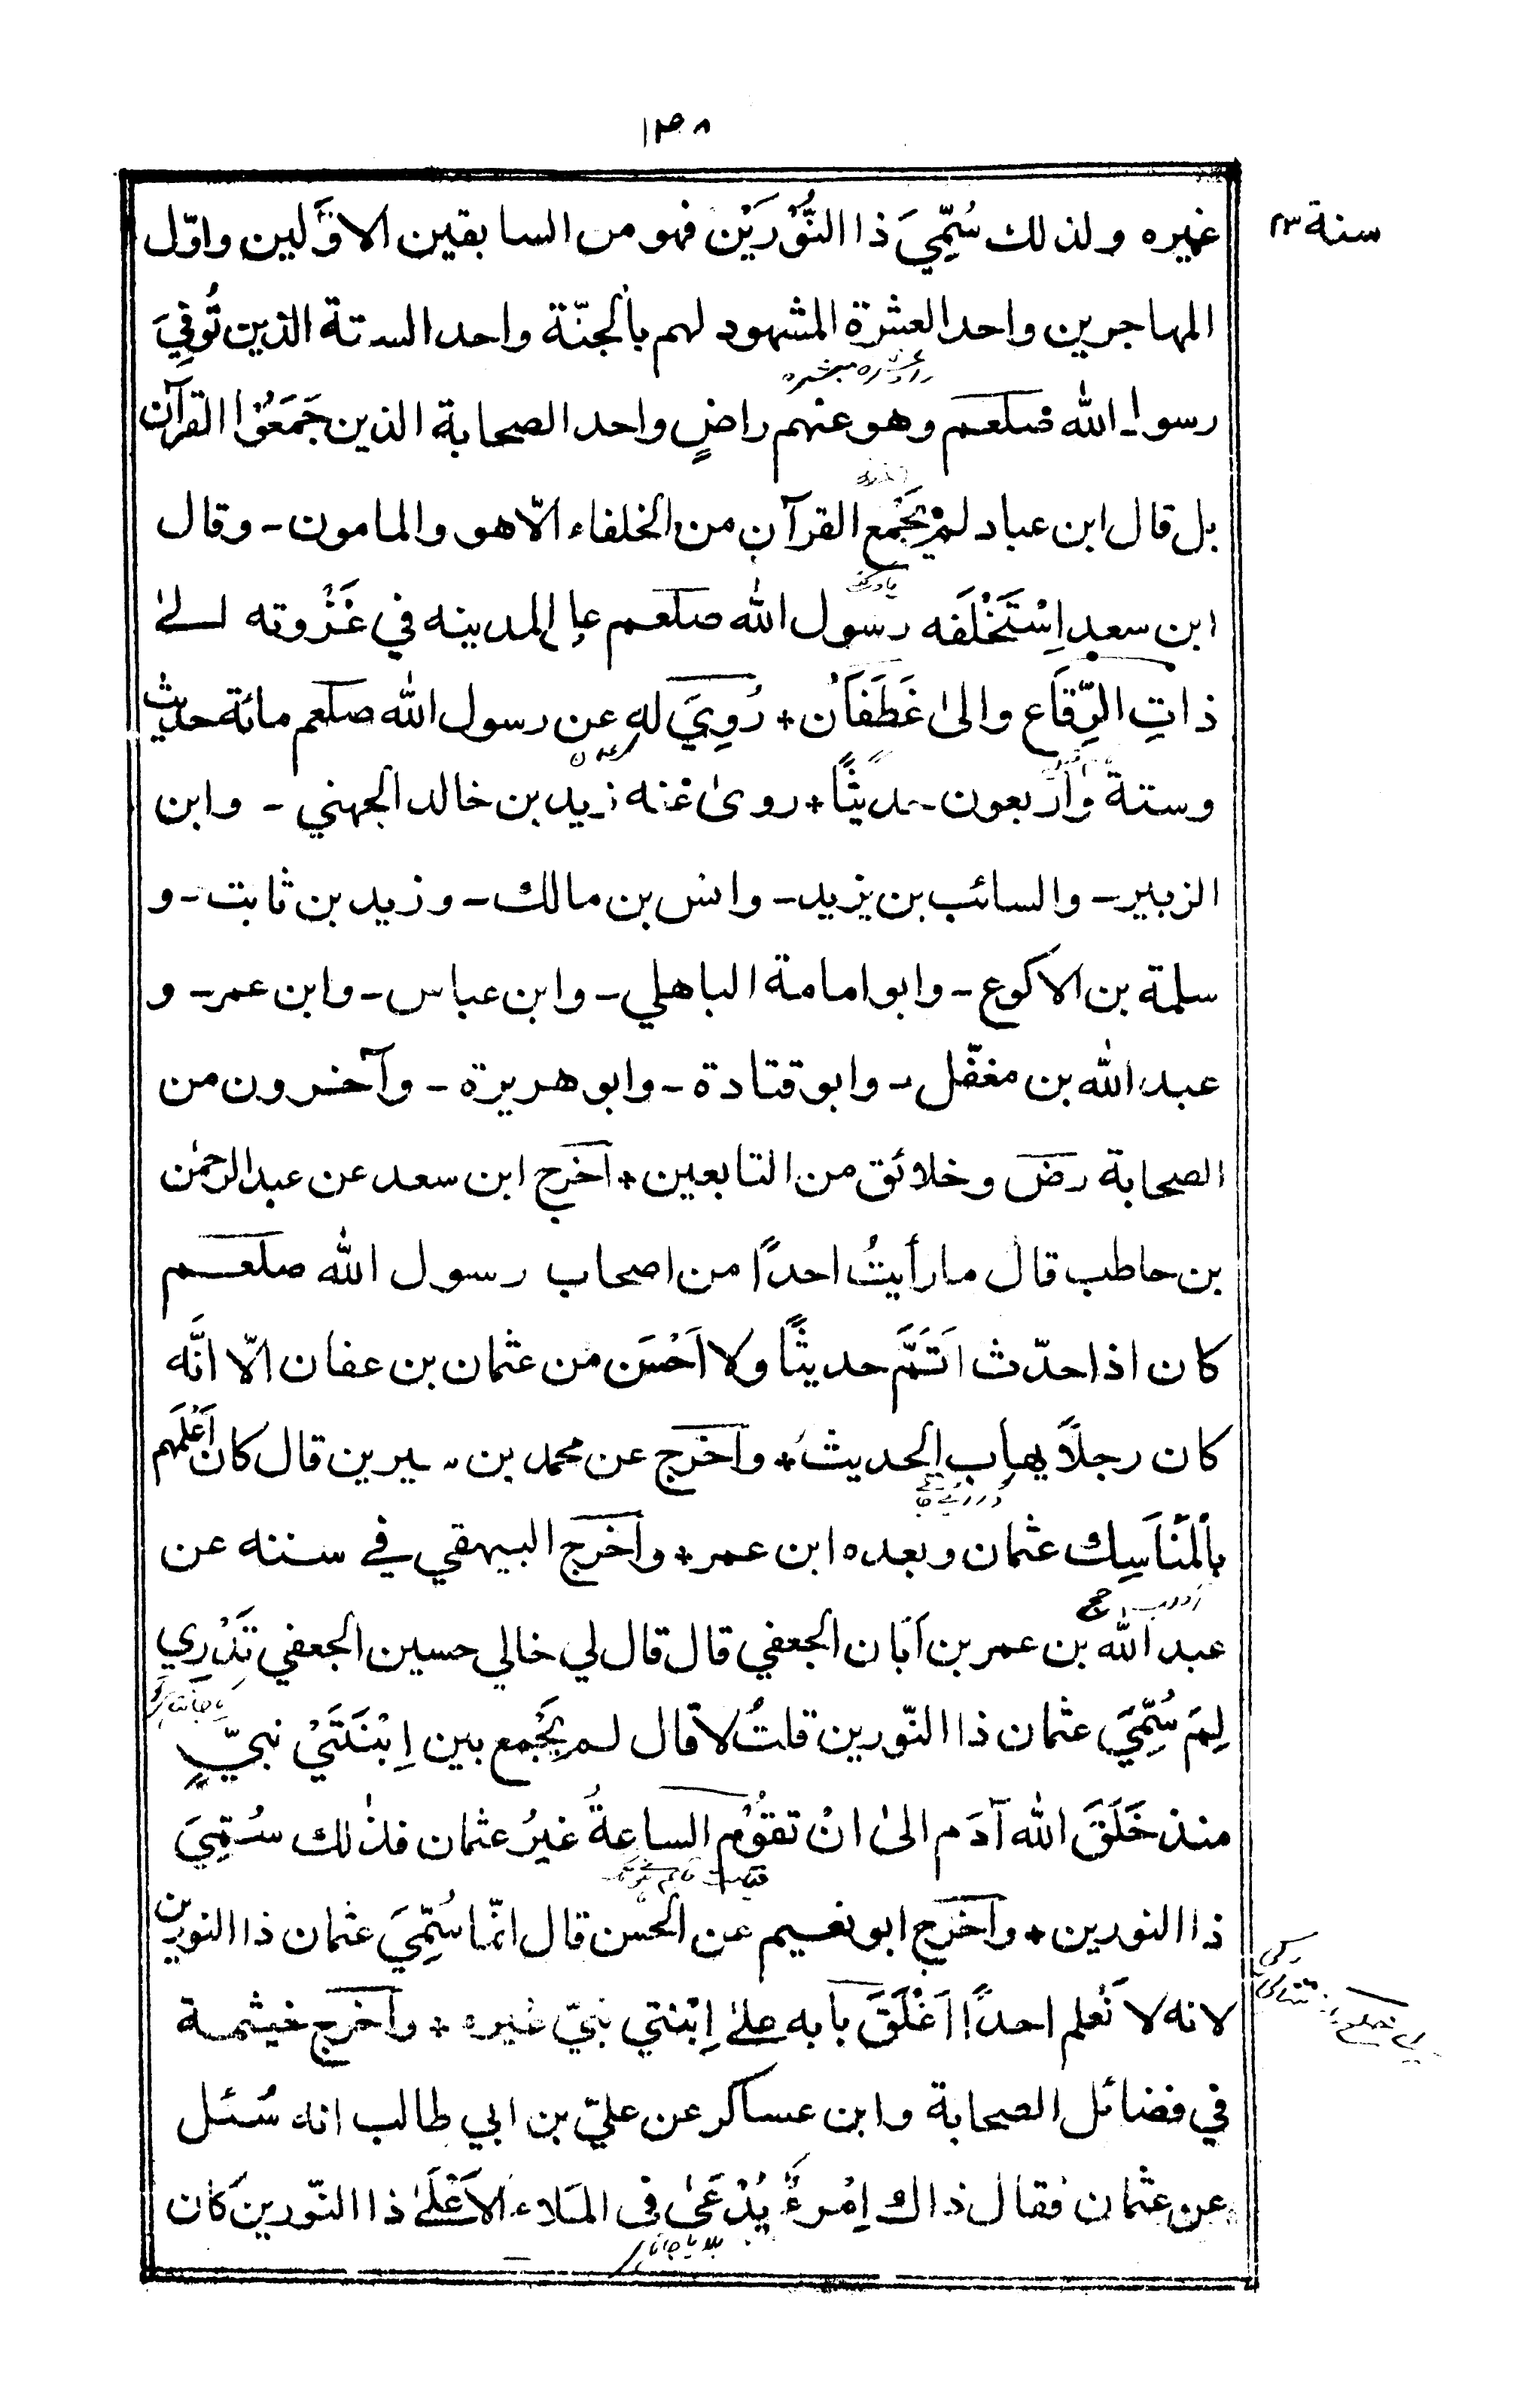 ١٣٨
سنة ٢٣
غيره ولذلك سُمِّيَ ذا النُّوْرَيْن فهو من السابقين الاوَّلين واوّل
المهاجرين واحد العشرة المشهود لهم بالجنّة واحد الستة الذين تُوفِيَ
رسول الله صلعم وهو عنهم راضٍ واحد الصحابة الذين جَمَعُوا القرآن
بل قال ابن عباد لمْ يَجْمع القرآن من الخلفاء الّا هو والمامون - وقال
ابن سعد اِسْتَخْلَفه رسول الله صلعم على المدينه في غَزْوته الىٰ
ذاتِ الرِّقَاع والىٰ غَطَفَان + رُوِيَ له عن رسول الله صلعم مائة حديث
وستة وأربعون حديثًا + روىٰ عنه زيد بن خالد الجهني - وابن
الزبير - والسائب بن يزيد - وانس بن مالك - وزيد بن ثابت - و
سلمة بن الاكوع - وابو امامة الباهلي - وابن عباس - وابن عمر - و
عبد الله بن مغفّل - وابو قتادة - وابو هريرة - وآخرون من
الصحابة رضؔ وخلائق من التابعين + اخرج ابن سعد عن عبد الرحمٰن
بن حاطب قال ما رأيتُ احدًا من اصحاب رسول الله صلعم
كان اذا حدّث اَتَمَّ حديثًا ولا اَحْسَن من عثمان بن عفان الّا انَّه
كان رجلًا يهاب الحديث + واخرج عن محمد بن سيرين قال كان اَعْلمهم
بالمَنَاسِك عثمان وبعده ابن عمر + واخرج البيهقي في سننه عن
عبد الله بن عمر بن اَبَان الجعفي قال قال لي خالي حسين الجعفي تَدْرِي
لِمَ سُمِّيَ عثمان ذا النّورين قلتُ لا قال لم يَجْمع بين اِبْنَتَيْ نبيٍّ
منذ خَلَقَ الله آدَم الىٰ انْ تقوْم الساعةُ غيرُ عثمان فلذٰلك سُمِّيَ
ذا النورين + واخرج ابو نعيم عن الحسن قال انّما سُمِّيَ عثمان ذا النورين
لانه لا نَعْلم احدًا اَغْلَقَ بابه علىٰ اِبْنتي نبيّ غيره + واخرج خيثمة
في فضائل الصحابة وابن عساكر عن عليّ بن ابي طالب انه سُئل
عن عثمان فقال ذاك اِمْرءٌ يُدْعَىٰ فى المَلاء الاَعْلَىٰ ذا النّورين كان